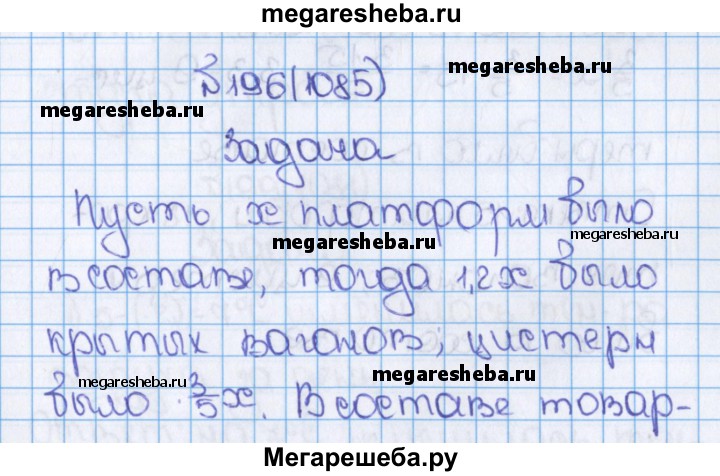 megaresheba.ru
№196(1085)
megaresheba.ru
megaresheba.ru
задача
Пусть x платформ было
megaresheba.ru
megaresheba.ru
в составе, тогда 1,2x было
крытых вагонов; цистерн
megaresheba.ru
megaresheba.ru
было 3/5 x. В составе товар-
Мегарешеба.ру